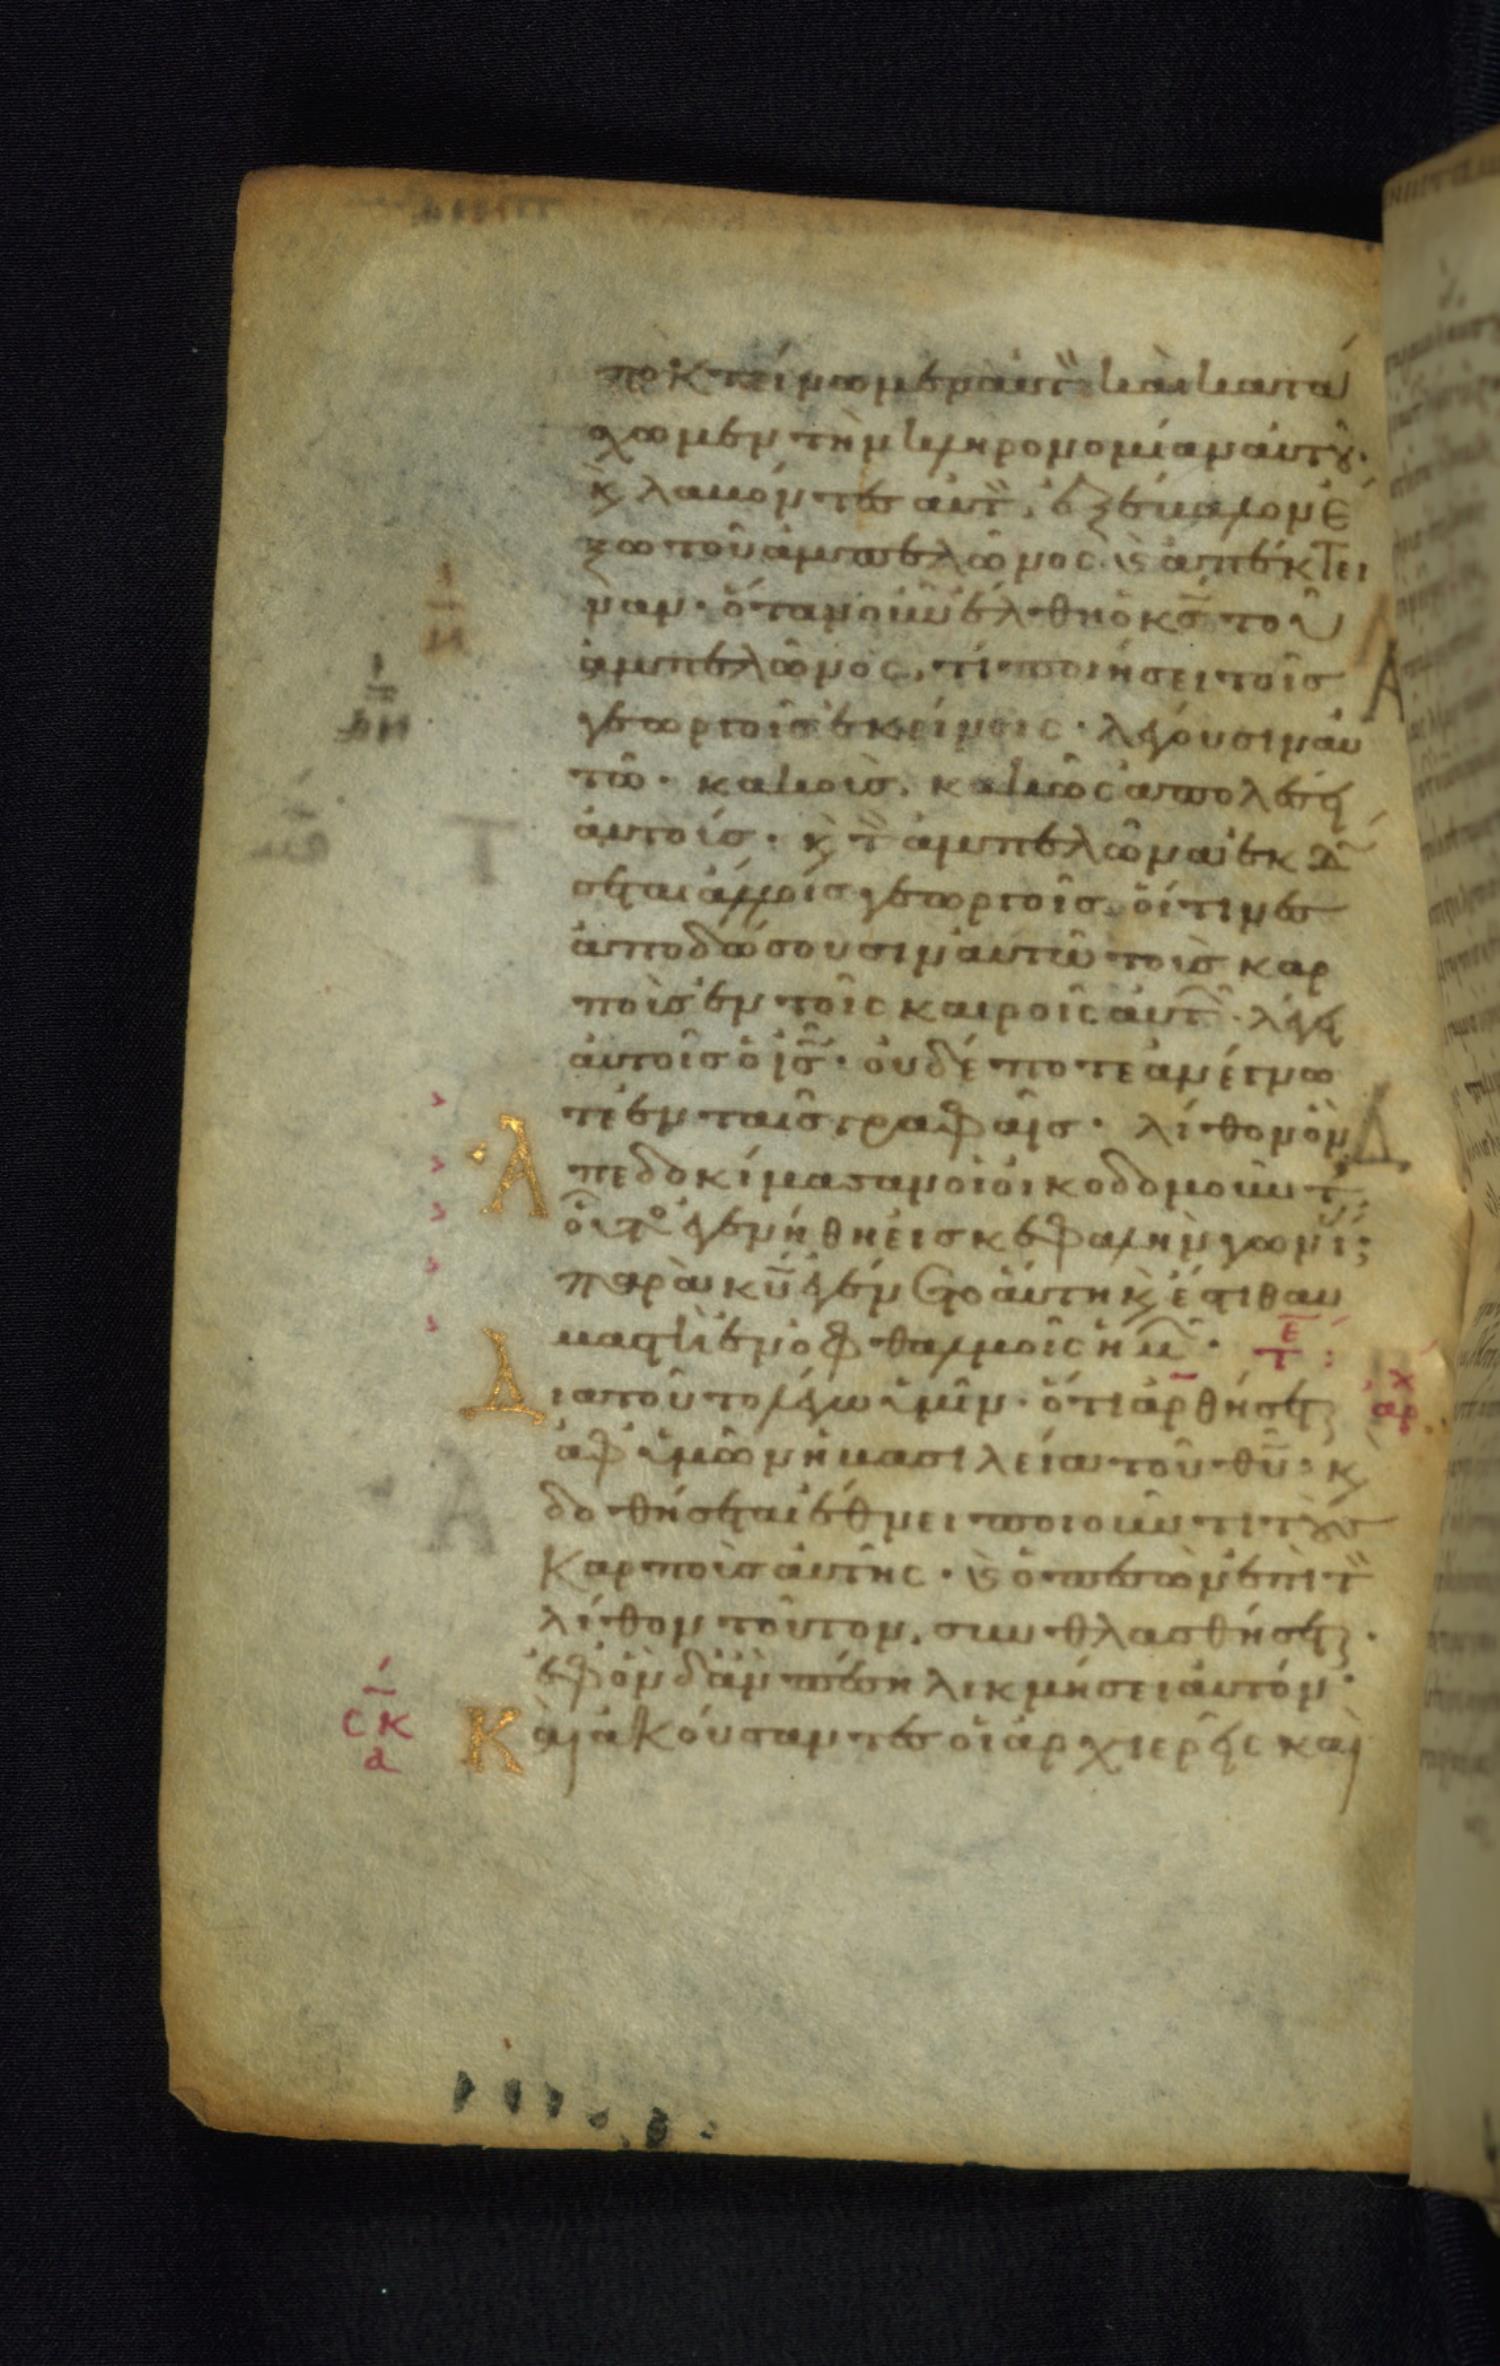 ποκτείνωμεν αυτ καὶ κατά
χωμεν τὴν κληρονομίαν αυτοῦ.
κ λαβόντες αυτ, ἐξέβαλον ἔ
ξω τοῦ ἀμπελῶνος. κ ἀπέκτει
ναν· ὅταν οὖν ἔλθη ὁ κς τοῦ
ἀμπελῶνος, τί ποιήσει τοῖς
γεωργοῖς ἐκείνοις· λέγουσιν αὐ
τῶ· κακοὺς, κακῶς ἀπολέσει
αὐτούς· κ τ ἀμπελῶνα ἐκδώ
σεται ἄλλοις γεωργοῖς, οἵτινες
ἀποδώσουσιν αὐτῶ τοὺς καρ
ποὺς ἐν τοῖς καιροῖς αὐτ. λέγει
αὐτοῖς ὁ ις· οὐδέποτε ἀνέγνω
τε ἐν ταῖς γραφαῖς· λίθον ὃν
Ἀπεδοκίμασαν οἱ οἰκοδομοῦντ,
οὗτο ἐγενήθη εἰς κεφαλὴν γωνί;
παρὰ κυ ἐγένετο αὕτη κ ἔστι θαυ
μαστὴ ἐν ὀφθαλμοῖς ἡμ· ΤΕ
Διατοῦτο λέγω ὑμῖν· ὅτι ἀρθήσεται αρχ
ἀφ ὑμῶν ἡ βασιλεία τοῦ θυ· κ
δοθήσεται ἔθνει ποιοῦντι τοὺς
καρποὺς αὐτῆς· κ ὁ πεσὼν ἐπὶ τ
λίθον τοῦτον, συνθλασθήσεται.
ἐφ ὃν δ ἂν πέση λικμήσει αὐτόν·
CΚ
α
Καὶ ἀκούσαντες οἱ ἀρχιερεῖς καὶ